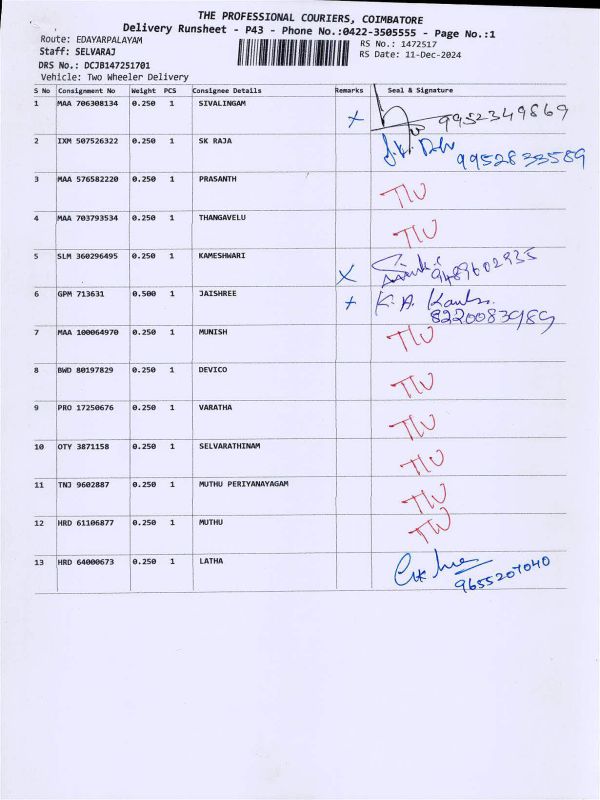 THE PROFESSIONAL COURIERS, COIMBATORE
Delivery Runsheet - P43 - Phone No.:0422-3505555 - Page No.:1
Route: EDAYARPALAYAM RS No.: 1472517
Staff: SELVARAJ RS Date: 11-Dec-2024
DRS No.: DCJB147251701
Vehicle: Two Wheeler Delivery
S No Consignment No Weight PCS Consignee Details Remarks Seal & Signature
1 MAA 706308134 0.250 1 SIVALINGAM x 9952349869
2 IXM 507526322 0.250 1 SK RAJA 9952833589
3 MAA 576582220 0.250 1 PRASANTH
4 MAA 703793534 0.250 1 THANGAVELU
5 SLM 360296495 0.250 1 KAMESHWARI x 9489602935
6 GPM 713631 0.500 1 JAISHREE + K. A.
8220083989
7 MAA 100064970 0.250 1 MUNISH
8 BWD 80197829 0.250 1 DEVICO
9 PRO 17250676 0.250 1 VARATHA
10 OTY 3871158 0.250 1 SELVARATHINAM
11 TNJ 9602887 0.250 1 MUTHU PERIYANAYAGAM
12 HRD 61106877 0.250 1 MUTHU
13 HRD 64000673 0.250 1 LATHA
9655207040